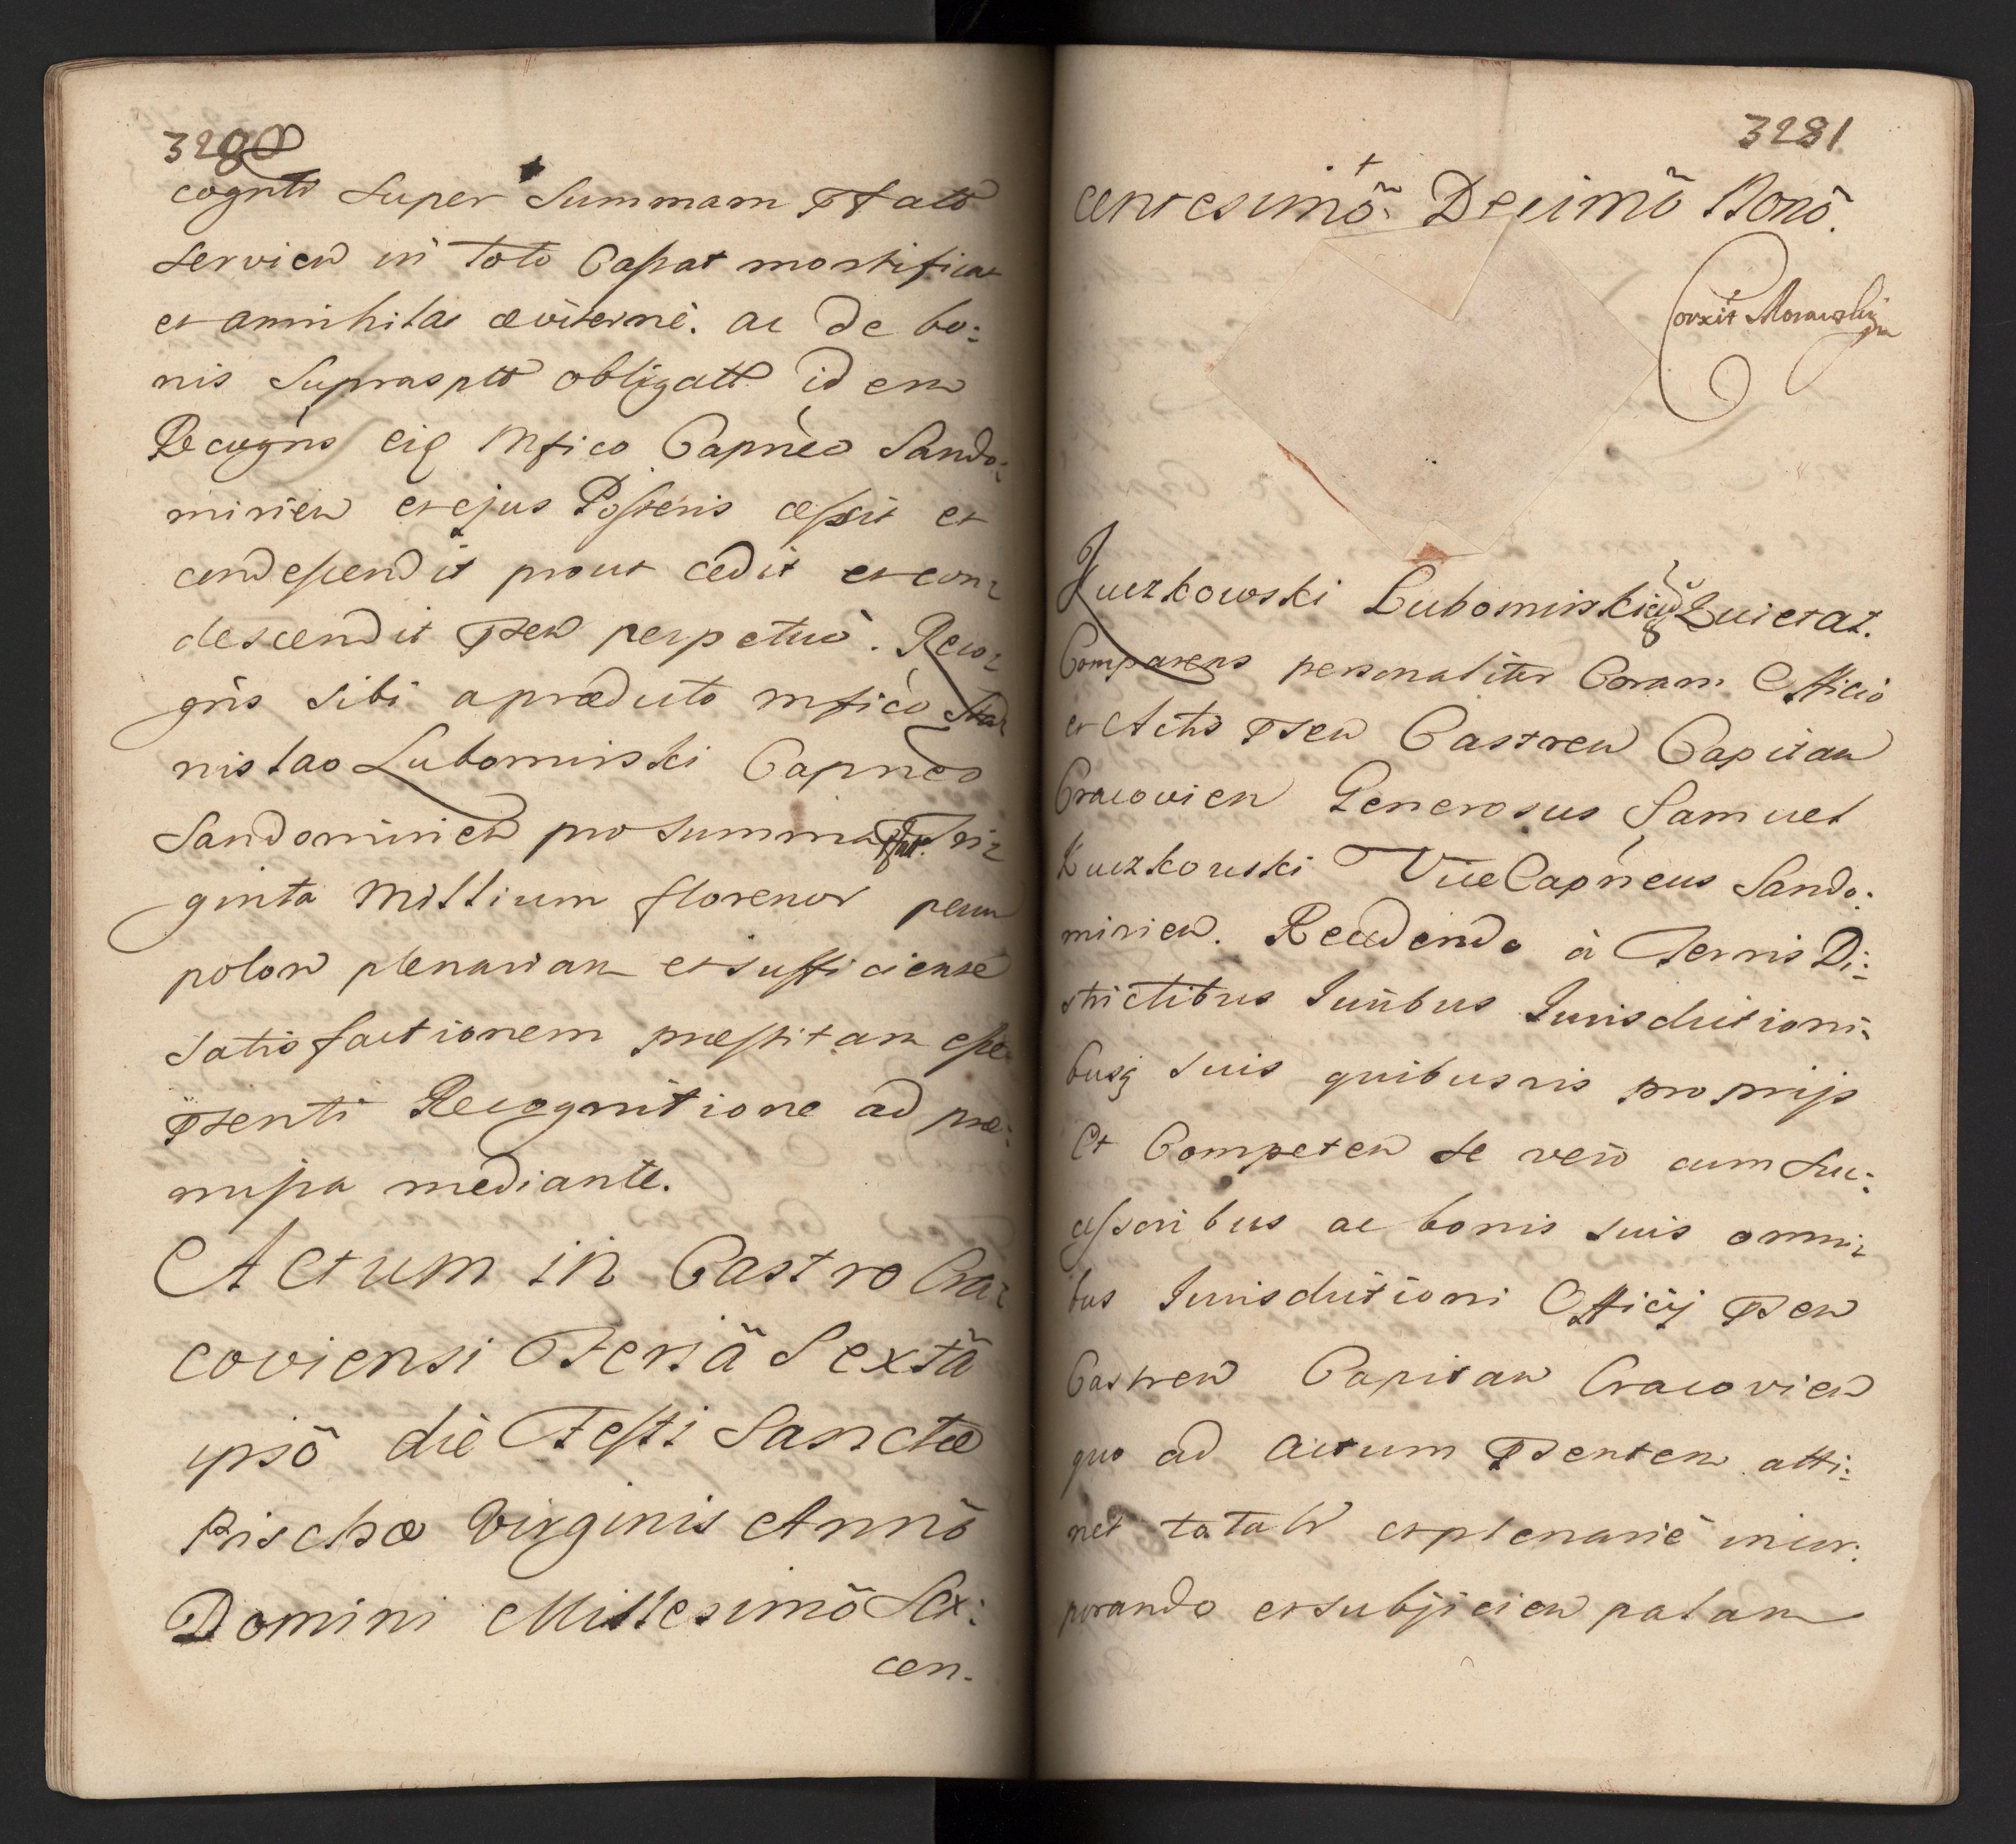 3280
cognto super Summam Pstatt
servien in toto Cassat mortificat
et annihilat æviternè. ac de bo:
nis Suprasptt obligatt idem
Recogns eiq Mfico Capneo Sando:
mirien et ejus Posteris cessit et
condescendit prout cedit et con:
descendit Psen perpetuò. Reco:
gns sibi a prædicto mfico Sta:
nislao Lubomirski Capneo
Sandomirien pro summa Tri:
ginta Millium florenor pecun
polon plenariam et sufficientē
satisfactionem præstitam esse
Psenti Recognitione ad præ:
missa mediante.
Actum in Castro Cra:
coviensi Feriâ Sextâ
ipsô die Festi Sanctæ
Priscæ Virginis Annô
Domini Millesimô Sex:
cen.
3281
centesimô Decimô Nonô.
Corxit Morawski
Kuczkowski Lubomirski Quietat.
Comparens personaliter Coram Officio
et Actis Psen Castren Capitan
Cracovien Generosus Samuel
Kuczkowski ViceCapneus Sando:
mirien. Recedendo à Terris Di:
strictibus Juribus Jurisdictioni:
busq suis quibusvis proprijs
et Competen se verò cum Suc:
cessoribus ac bonis suis omni:
bus Jurisdictioni Officij Psen
Castren Capitan Cracovien
quo ad actum Psentem atti:
net totalr et plenariè incor:
porando et subjicien palam